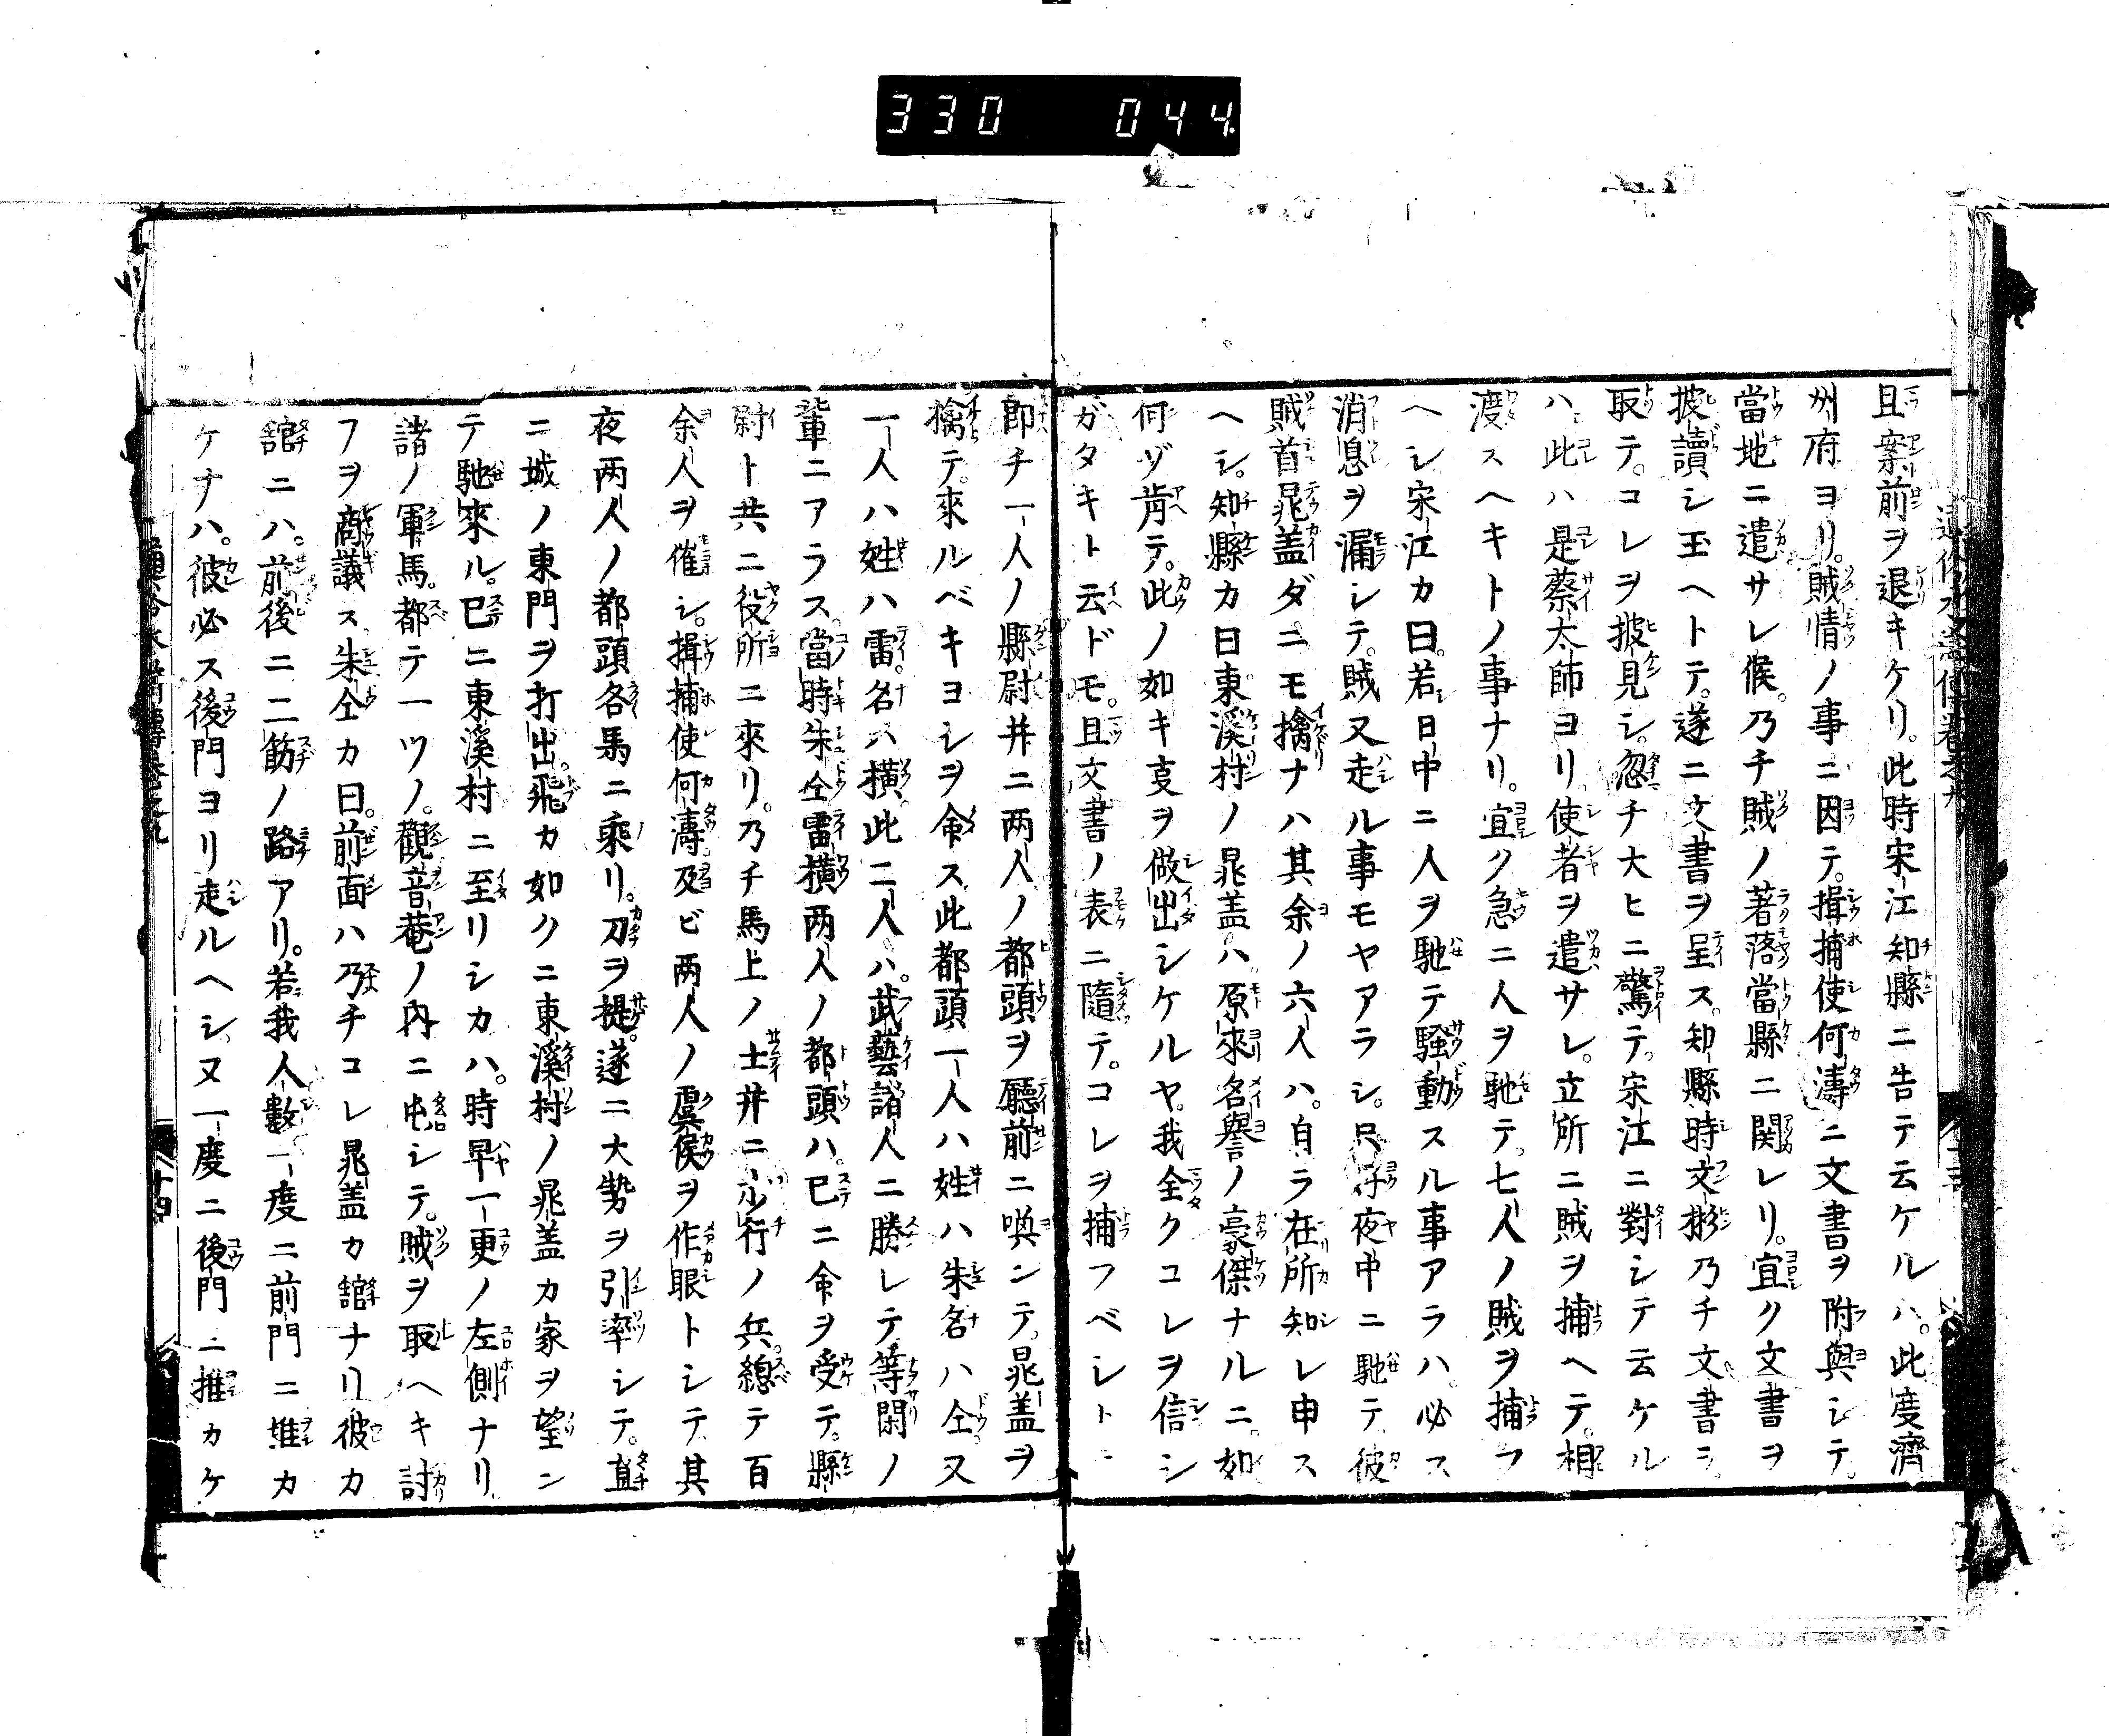 330 044
且案前ヲ退キケリ。此時宋江知縣ニ告テ云ケルハ。此度濟
州府ヨリ。賊情ノ事ニ因テ。揖捕使何濤ニ文書ヲ附與シテ。
當地ニ遣サレ候。乃チ賊ノ著落當縣ニ関レリ。宜ク文書ヲ
披讀シ玉ヘトテ。遂ニ文書ヲ呈ス。知縣時文彬乃チ文書ヲ
取テ。コレヲ披見シ。忽チ大ヒニ驚テ。宋江ニ對シテ云ケル
ハ。此ハ是蔡太師ヨリ使者ヲ遣サレ。立所ニ賊ヲ捕ヘテ。相
渡スヘキトノ事ナリ。宜ク急ニ人ヲ馳テ。七人ノ賊ヲ捕フ
ヘシ宋江カ曰。若日中ニ人ヲ馳テ騒動スル事アラハ。必ス
消息ヲ漏シテ。賊又走ル事モヤアラシ。只夜中ニ馳テ彼
賊首晁盖ダニモ擒ナハ其余ノ六人ハ。自ラ在所知レ申ス
ヘシ。知縣カ曰東溪村ノ晁盖ハ。原來名譽ノ豪傑ナルニ。如
何ゾ肯テ。此ノ如キ㕝ヲ做出シケルヤ。我全クコレヲ信シ
ガタキト云ドモ。且文書ノ表ニ隨テ。コレヲ捕フベシト
即チ一人ノ縣尉并ニ両人ノ都頭ヲ廳前ニ喚ンテ。晁盖ヲ
擒テ。來ルベキヨシヲ命ス此都頭一人ハ姓ハ朱名ハ仝。又
一人ハ姓ハ雷。名ハ横。此二人ハ。武藝諸人ニ勝レテ。等閑ノ
輩ニアラス。當時朱仝雷横両人ノ都頭ハ。已ニ命ヲ受テ。縣
尉ト共ニ役所ニ來リ。乃チ馬上ノ士并ニ歩行ノ兵。總テ百
余人ヲ催シ。揖捕使何濤。及ビ両人ノ虞候ヲ作眼トシテ。其
夜両人ノ都頭各馬ニ乘リ。刀ヲ提。遂ニ大勢ヲ引率シテ。直
ニ城ノ東門ヲ打出。飛カ如クニ東溪村ノ晁盖カ家ヲ望ン
テ馳來ル。已ニ東溪村ニ至リシカハ。時早一更ノ左側ナリ。
諸ノ軍馬。都テ一ツノ。觀音菴ノ内ニ屯シテ。賊ヲ取ヘキ討
フヲ商議ス朱仝カ曰。前面ハ乃チコレ晁盖カ舘ナリ彼カ
舘ニハ。前後ニ二筋ノ路アリ。若我人數一度ニ前門ニ推カ
ケナハ。彼必ス後門ヨリ走ルヘシ。又一度ニ後門ニ推カケ
十四